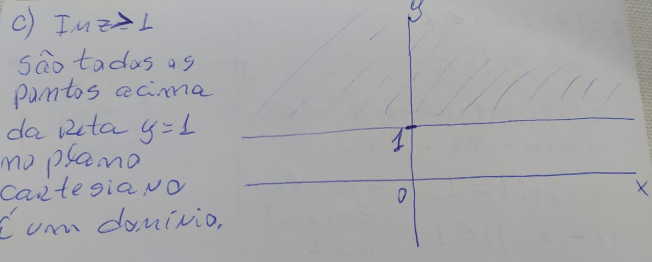 c) Im z > 1
são todos os
pontos acima
da reta y = 1
no plano
cartesiano
É um domínio.
y
1
0
x